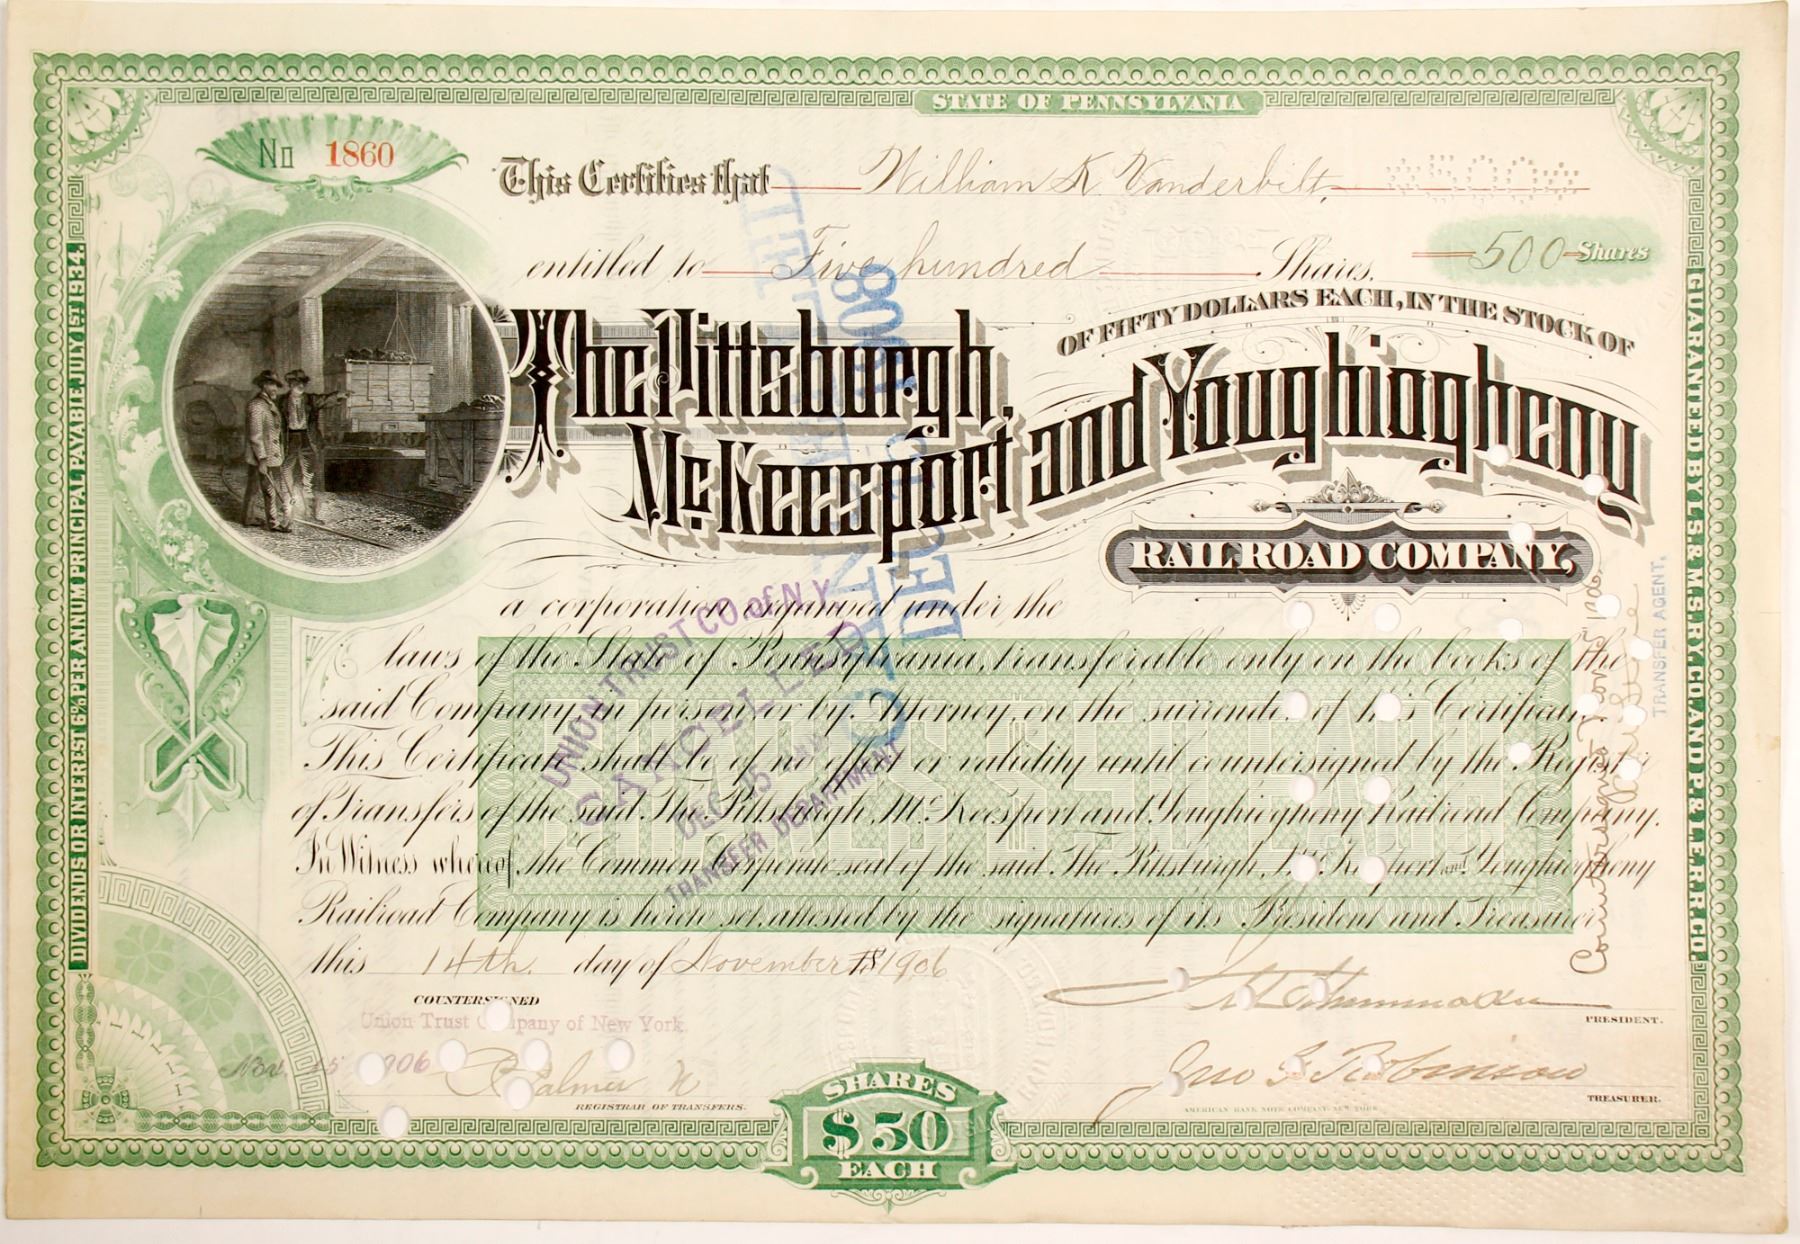 STATE OF PENNSYLVANIA
No 1860
This Certifies that William K Vanderbilt, *500*
entitled to Five hundred Shares. 500 Shares
OF FIFTY DOLLARS EACH, IN THE STOCK OF
The Pittsburgh, McKeesport and Youghiogheny
RAIL ROAD COMPANY,
a corporation organized under the
laws of the State of Pennsylvania, transferable only on the books of the
said Company in person or by Attorney, on the surrender of this Certificate.
This Certificate shall be of no effect or validity until countersigned by the Register
of Transfers of the said The Pittsburgh, McKeesport and Youghiogheny Railroad Company.
In Witness whereof, the Common Corporate seal of the said The Pittsburgh, McKeesport and Youghiogheny
Railroad Company is hereto set, attested by the signatures of its President and Treasurer
this 14th. day of November 18 1906
COUNTERSIGNED
Union Trust Company of New York.
Nov. 15 1906
Palmer
REGISTRAR OF TRANSFERS.
PRESIDENT.
Jno G Robinson
TREASURER.
AMERICAN BANK NOTE COMPANY, NEW YORK
SHARES
$50
EACH
SHARES $50 EACH
DIVIDENDS OR INTEREST 6% PER ANNUM PRINCIPAL PAYABLE JULY 1ST 1934.
GUARANTEED BY L.S. & M.S. RY. CO. AND P. & L.E.R.R. CO.
UNION TRUST CO. of N.Y.
CANCELLED
DEC
TRANSFER DEPARTMENT
Countersigned Nov 15 1906
TRANSFER AGENT.